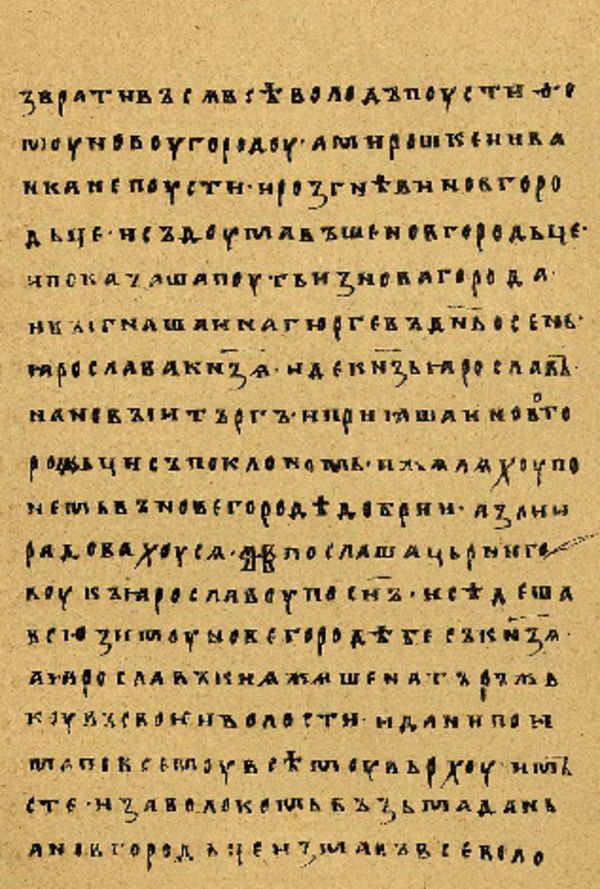 звративъсѧвсѣволодъпоусти·ѳ·о
моуновоугородоу·амирошкеиива
нканепоусти·ирозгнѣвиновгоро
дьце·исъдоумавъшеновгородьце·
ипоказашапоутьизновагорода·
ивꙑгнашаинагюргевъдн҃ьосень·
ꙗрославакнѧ҃зѧ·идекнѧ҃зьꙗрославъ·
нановꙑитъргъ·иприꙗшаиновᲂто
рожьцисъпоклономь·ижѧлѧхоупо
немьвъновегородѣдобрии·азлии
радовахоусѧ·
послашацьрниго
воукъꙗрославоупосн҃ъ·исѣдеша
всюзимоуновегородѣбесъкн҃зѧ·
аꙗрославъкнѧжѧшенатържь
коувъсвоѥиволости·иданипои
маповсемоувсѣмоувьрхоуимь
сте·изаволокомьвъзьмадань
ановгородьцеизмавъвсеволо